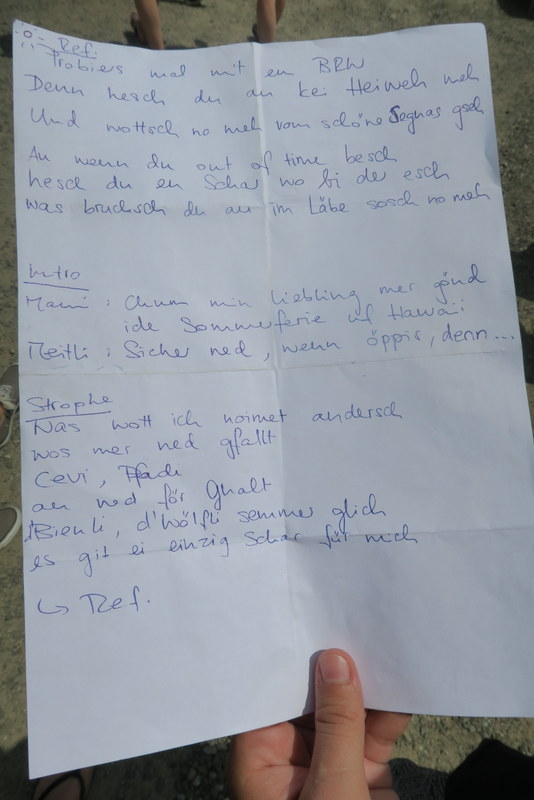 Ref.
Probiers mal mit em BRW
Denn hesch du au kei Heiweh meh
Und wottsch no meh vom schöne Segnas gseh
Au wenn du out of time besch
hesch du en Schar wo bi der esch
Was bruchsch du au im Läbe sosch no meh
Intro
Mami : Chum min Liebling mer gönd
ide Sommerferie uf Hawaii
Meitli : Sicher ned, wenn öppis, denn...
Strophe
Was wott ich noimet andersch
wos mer ned gfallt
Cevi, Pfadi
au ned för Ghalt
Bienli, d'Wölfli semmer glich
es git ei einzig Schar für mich
↳ Ref.